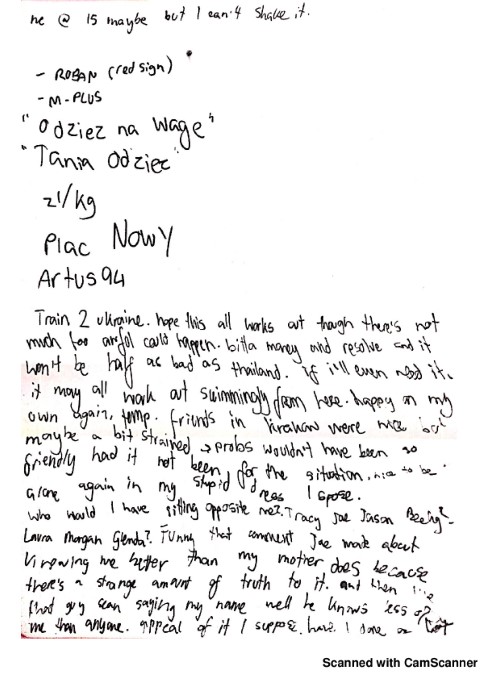 me @ 15 maybe but I can't shake it.
- ROBAN (red sign)
- M-PLUS
"Odziez na wage"
"Tania Odziez"
zł/kg
Plac Nowy
Artus94
Train 2 ukraine. hope this all works out though there's not
much too awful could happen. bitta money and resolve and it
won't be half as bad as thailand. if i'll even need it.
it may all work out swimmingly from here. happy on my
own again, temp. friends in Kraków were nice but
maybe a bit strained → probs wouldn't have been so
friendly had it not been for the situation. nice to be
alone again in my stupid I spose.
who would I have sitting opposite me? Tracy Joe Jason
Laura Morgan Glenda? Funny that comment Joe made about
knowing me better than my mother does because
there's a strange amount of truth to it. and then
that guy sean saying my name well he knows less of
me than anyone. appeal of it I suppose. have I done
Scanned with CamScanner